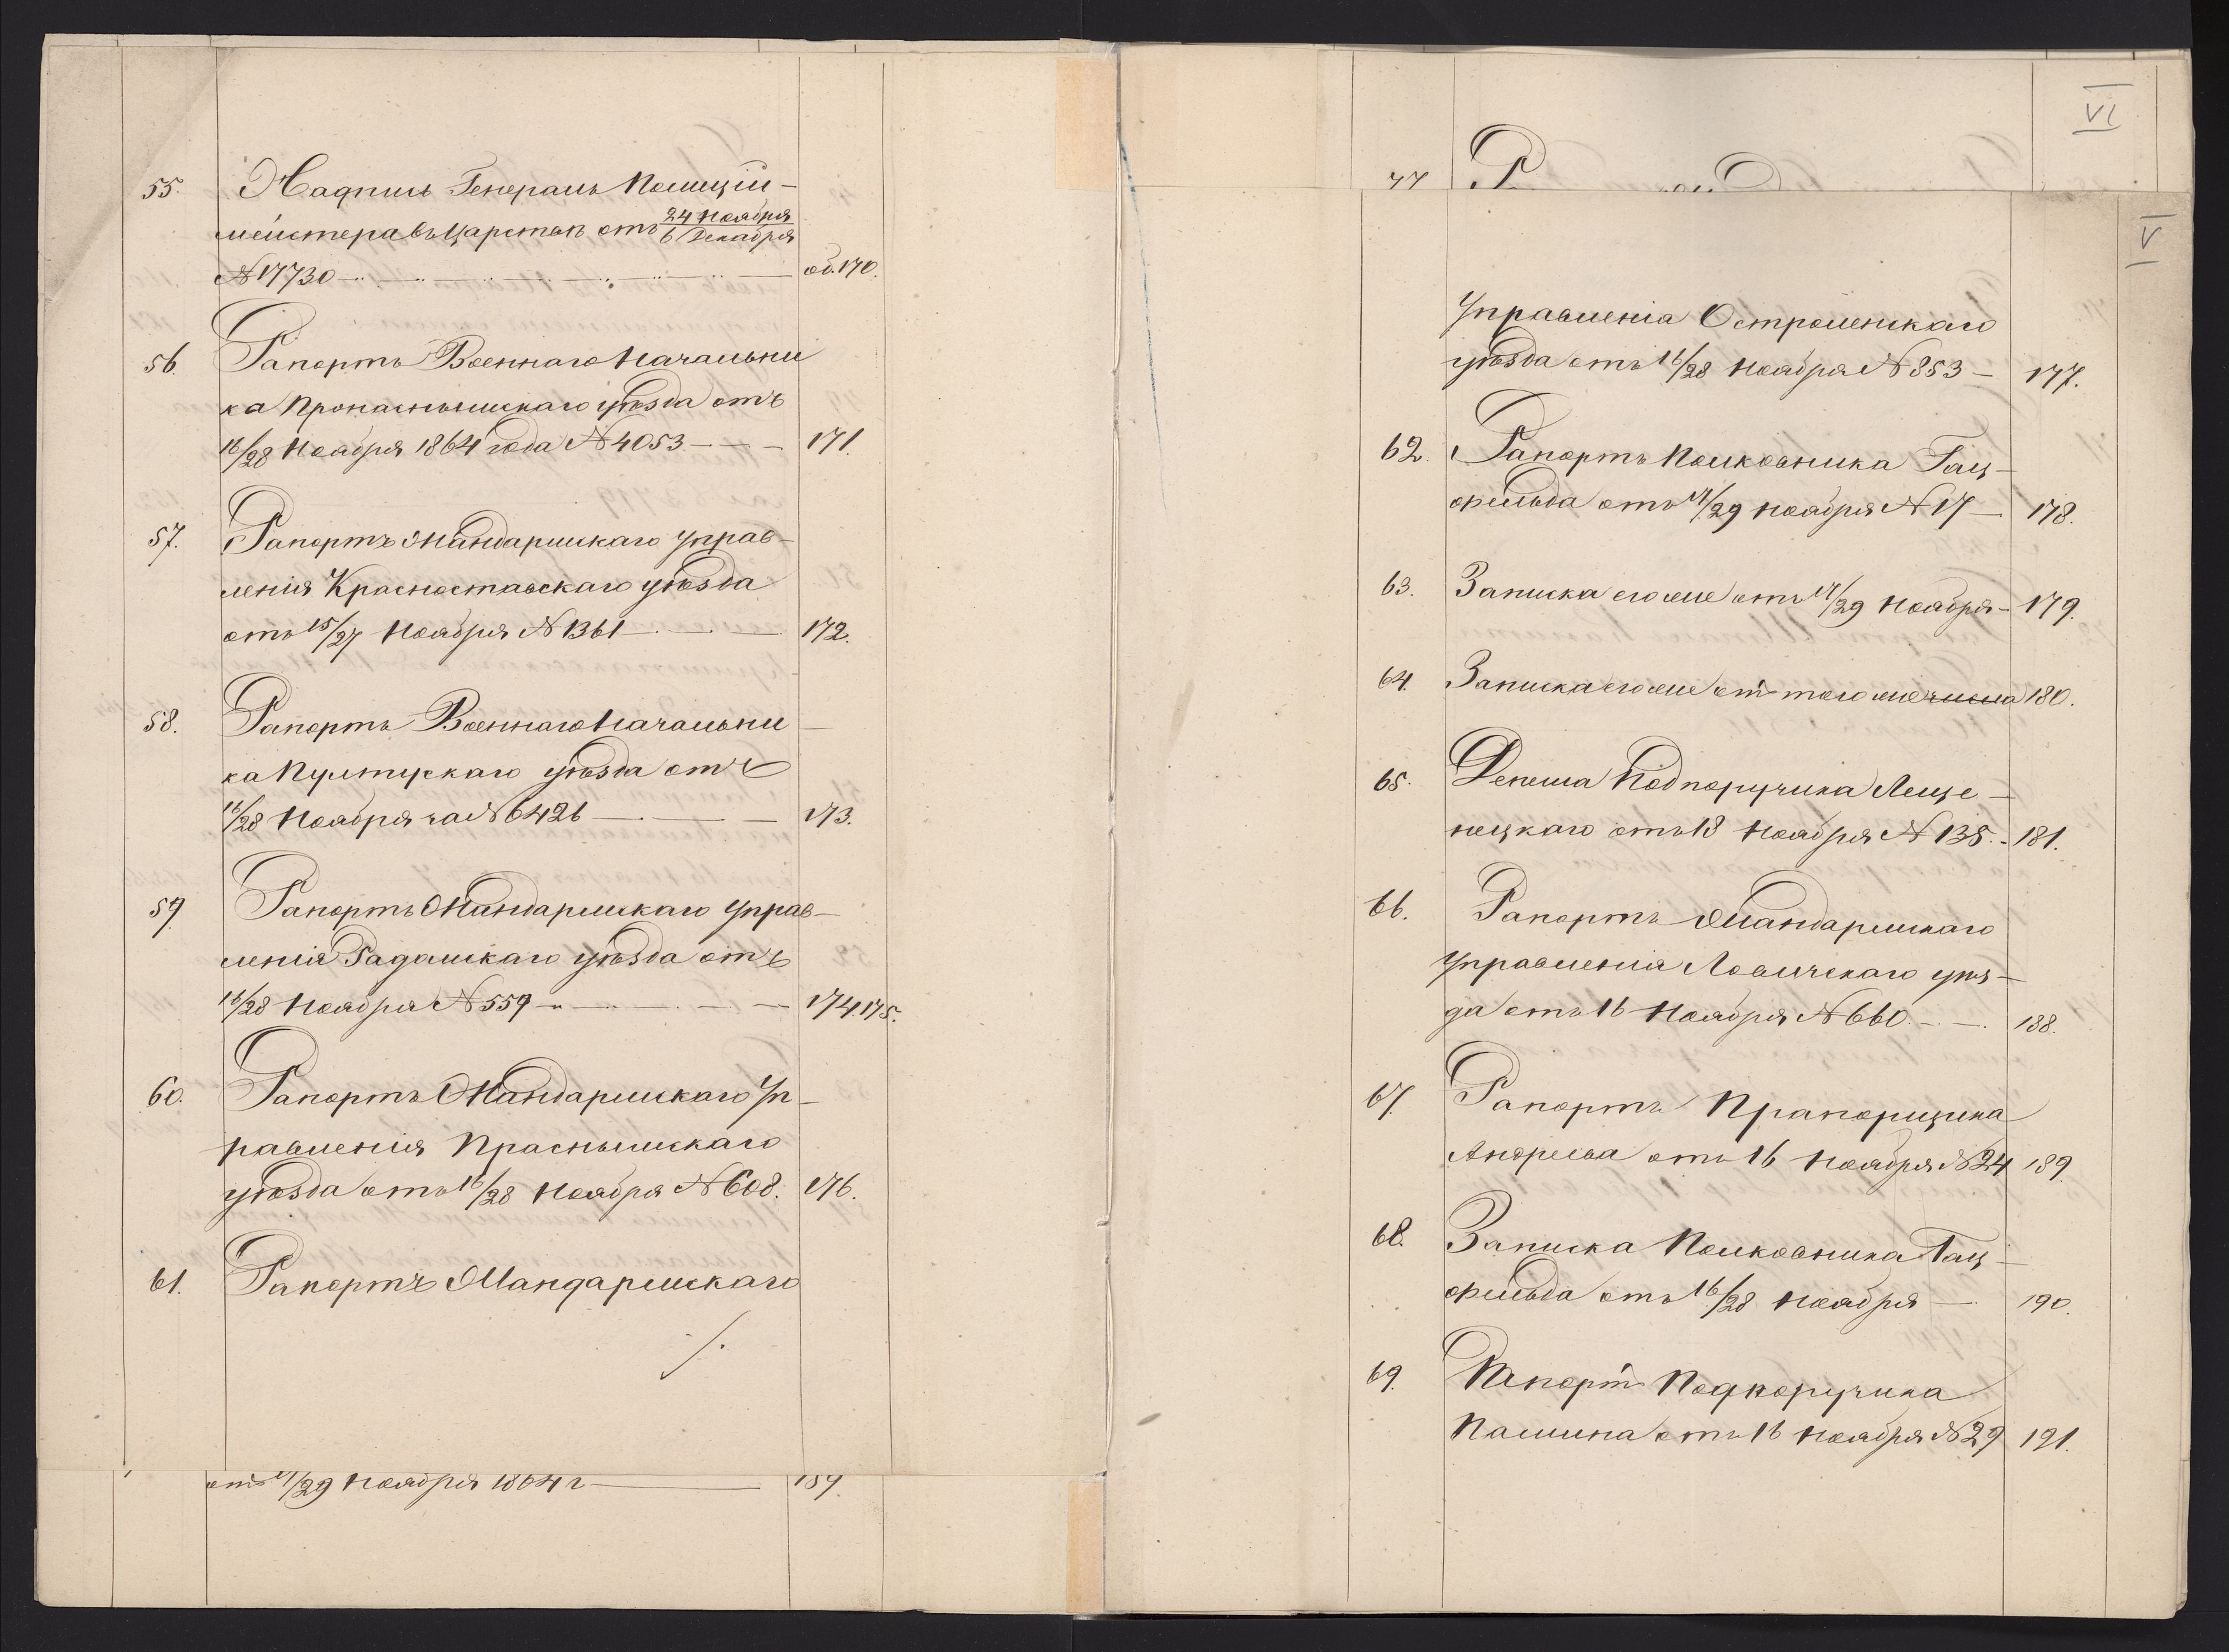 55. Надпись Генералъ Полиціи-
мейстера въ Царствѣ отъ 24 Ноября / 6 Декабря
№ 17730 об. 170.
56. Рапортъ Военнаго Начальни
ка Праснышскаго уѣзда отъ
16/28 Ноября 1864 года № 4053 — 171.
57. Рапортъ Жандармскаго Управ-
ленія Красноставскаго уѣзда
отъ 15/27 Ноября № 1361 — 172.
58. Рапортъ Военнаго Начальни —
ка Пултускаго уѣзда отъ
16/28 Ноября за № 6426 — 173.
59. Рапортъ Жандармскаго Управ-
ленія Радомскаго уѣзда отъ
16/28 Ноября № 559 — 174.175.
60. Рапортъ Жандармскаго Уп-
равленія Праснышскаго
уѣзда отъ 16/28 Ноября № 608. 176.
61. Рапортъ Жандармскаго
/.
отъ 17/29 Ноября 1864 г —
VI
77
V
Управленія Остроленскаго
уѣзда отъ 16/28 Ноября № 853 — 177.
62. Рапортъ Полковника Гац-
фельда отъ 17/29 Ноября № 17 — 178.
63. Записка его же отъ 17/29 Ноября — 179.
64. Записка его же отъ того же числа 180.
65. Депеша Подпоручика Леще-
нецкаго отъ 18 Ноября № 135. - 181.
66. Рапортъ Жандармскаго
Управленія Ловичскаго уѣз-
да отъ 16 Ноября № 660. — 188.
67. Рапортъ Прапорщика
Андреева отъ 16 Ноября № 24 189.
68. Записка Полковника Гац-
фельда отъ 16/28 Ноября — 190.
69. Рапортъ Подпоручика
отъ 16 Ноября № 29 191.